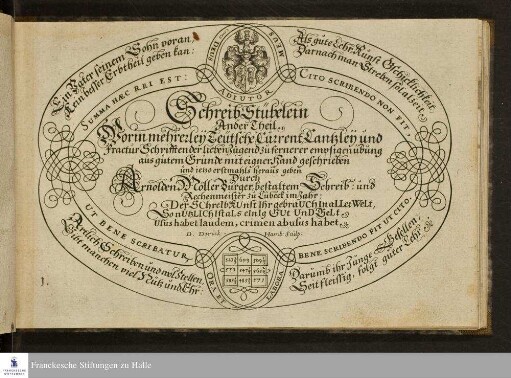 Ein Vater seinem Sohn voran,
Kein besser Erbtheil geben kan:
Als gute Lehr, Kunst
Darnach man Streben sol
SUMMA HÆC REI EST:
ADIUTOR
CITO SCRIBENDO NON FIT,
Schreib Stübelein
Ander Theil.
Worin mehrerley Teutsche Current Cantzley und
Fractur Schrifften der lieben Jugend zu fernerer emsigen übung
aus gutem Grunde mit eigner Hand geschrieben
und jetzo erstmahls heraus geben
Durch
Arnolden Möller Bürger, bestaltem Schreib: und
Rechenmeister zu Lübeck im Jahr:
Der SChreIbKUnst Ihr gebraUCh
Usus habet laudem, crimen abusus habet.
UT BENE SCRIBATUR,
BENE SCRIBENDO FIT UT CITO.
Artlich Schreiben und
Giebt manchen viel Nutz und Ehr:
ORA ET
LABORA
Darumb ihr Junge Gesellen,
Seit fleissig, folgt guter Lehr
1.
Franckesche Stiftungen zu Halle